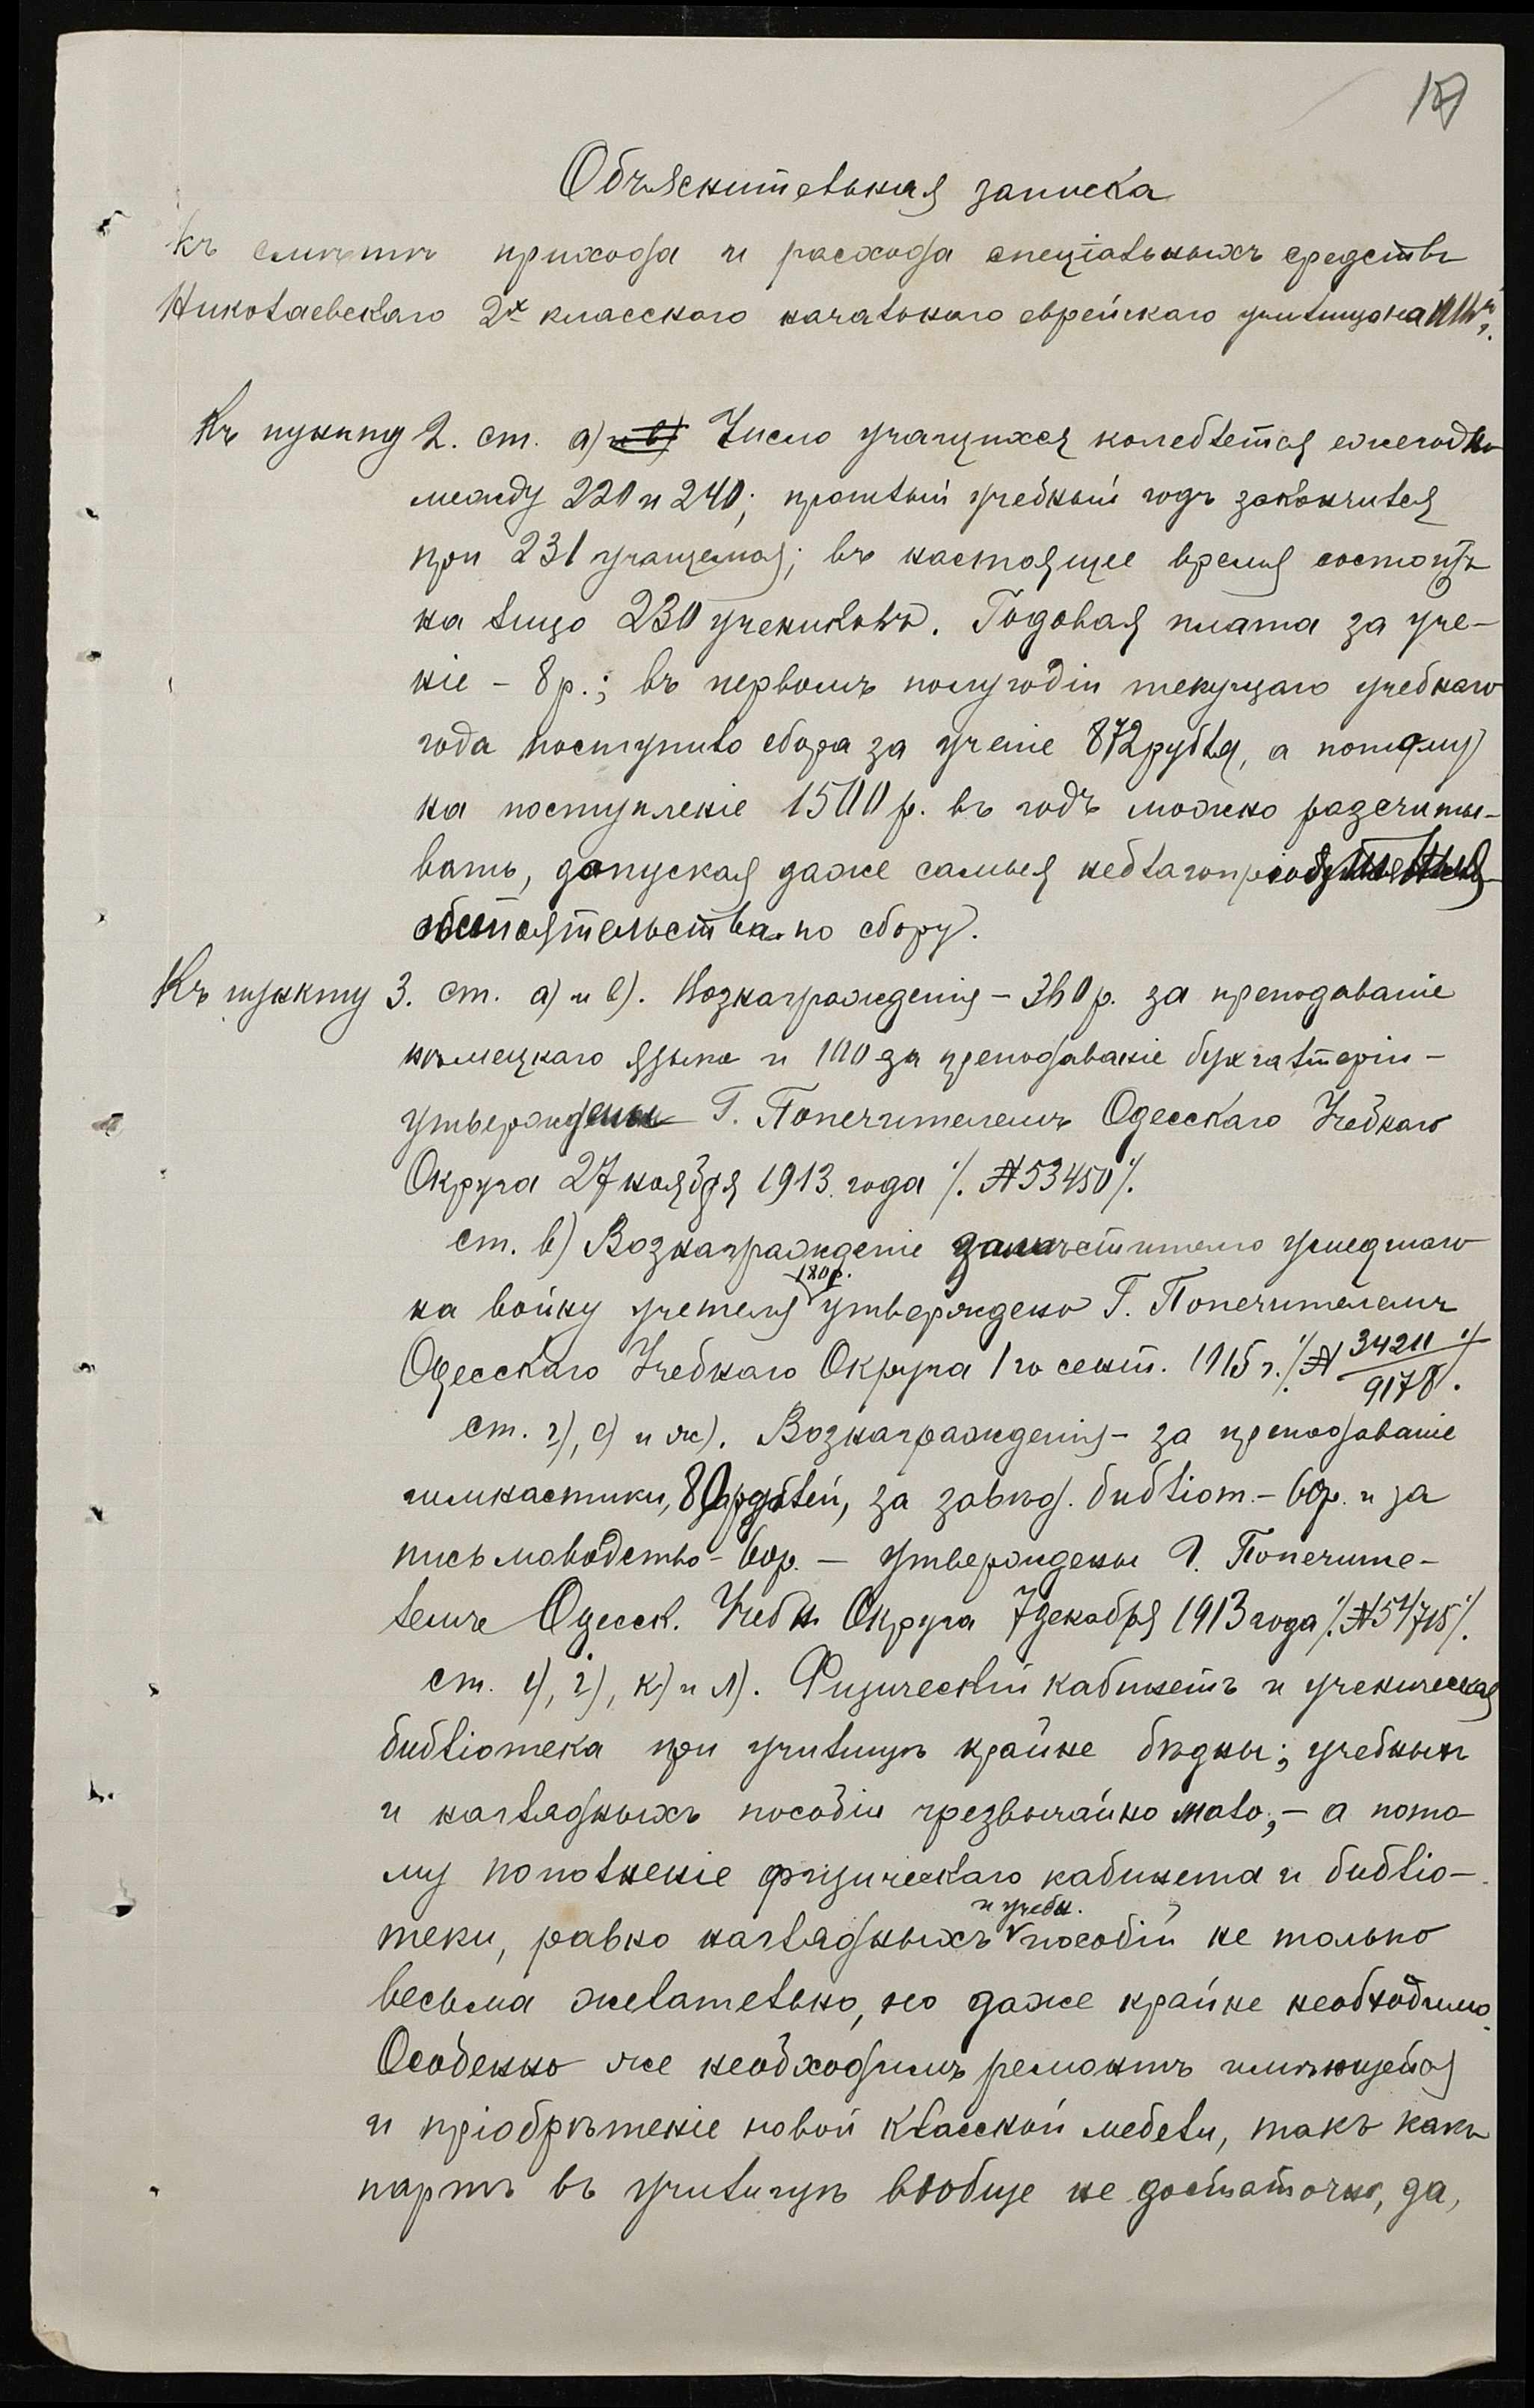 Объяснительная записка
къ смѣтѣ прихода и расхода спеціальныхъ средствъ
Николаевскаго 2х класснаго начальнаго еврейскаго училища на
Къ пункту 2. ст. а) и в) Число учащихся колеблется ежегодно
между 220 и 240; прошлый учебный годъ закончился
при 231 учащемся; въ настоящее время состоитъ
на лицо 230 учениковъ. Годовая плата за уче-
ніе - 8 р.; въ первомъ полугодіи текущаго учебнаго
года поступило сбора за ученіе 872 рубля, а потому
на поступленіе 1500 р. въ годъ можно разсчиты-
вать, допуская даже самыя неблагопріятныя
обстоятельства по сбору.
Къ пункту 3. ст. а) и б). Вознагражденія - 360 р. за преподаваніе
нѣмецкаго языка и 100 за преподаваніе бухгалтеріи -
утверждены Г. Попечителемъ Одесскаго Учебнаго
Округа 27 ноября 1913 года ./. № 53450 ./.
ст. в) Вознагражденіе замѣстителю ушедшаго
на войну учителя 180 р. утверждено Г. Попечителемъ
Одесскаго Учебнаго Округа 1го сент. 1915 г. ./. № 34211/9178 ./.
ст. г), е) и ж). Вознагражденія - за преподаваніе
гимнастики, 80 рублей, за завѣд. библіот. - 60 р. и за
письмоводство - 60 р. - утверждены Г. Попечите-
лемъ Одесск. Учебн. Округа 7 декабря 1913 года ./. № 54715 ./.
ст. і), к) и л). Физическій кабинетъ и ученическая
библіотека при училищѣ крайне бѣдны; учебныхъ
и наглядныхъ пособій чрезвычайно мало; - а пото-
му пополненіе физическаго кабинета и библіо-
теки, равно наглядныхъ и учебн. пособій не только
весьма желательно, но даже крайне необходимо.
Особенно же необходимъ ремонтъ имѣющейся
и пріобрѣтеніе новой классной мебели, такъ какъ
партъ въ училищѣ вообще не достаточно, да,